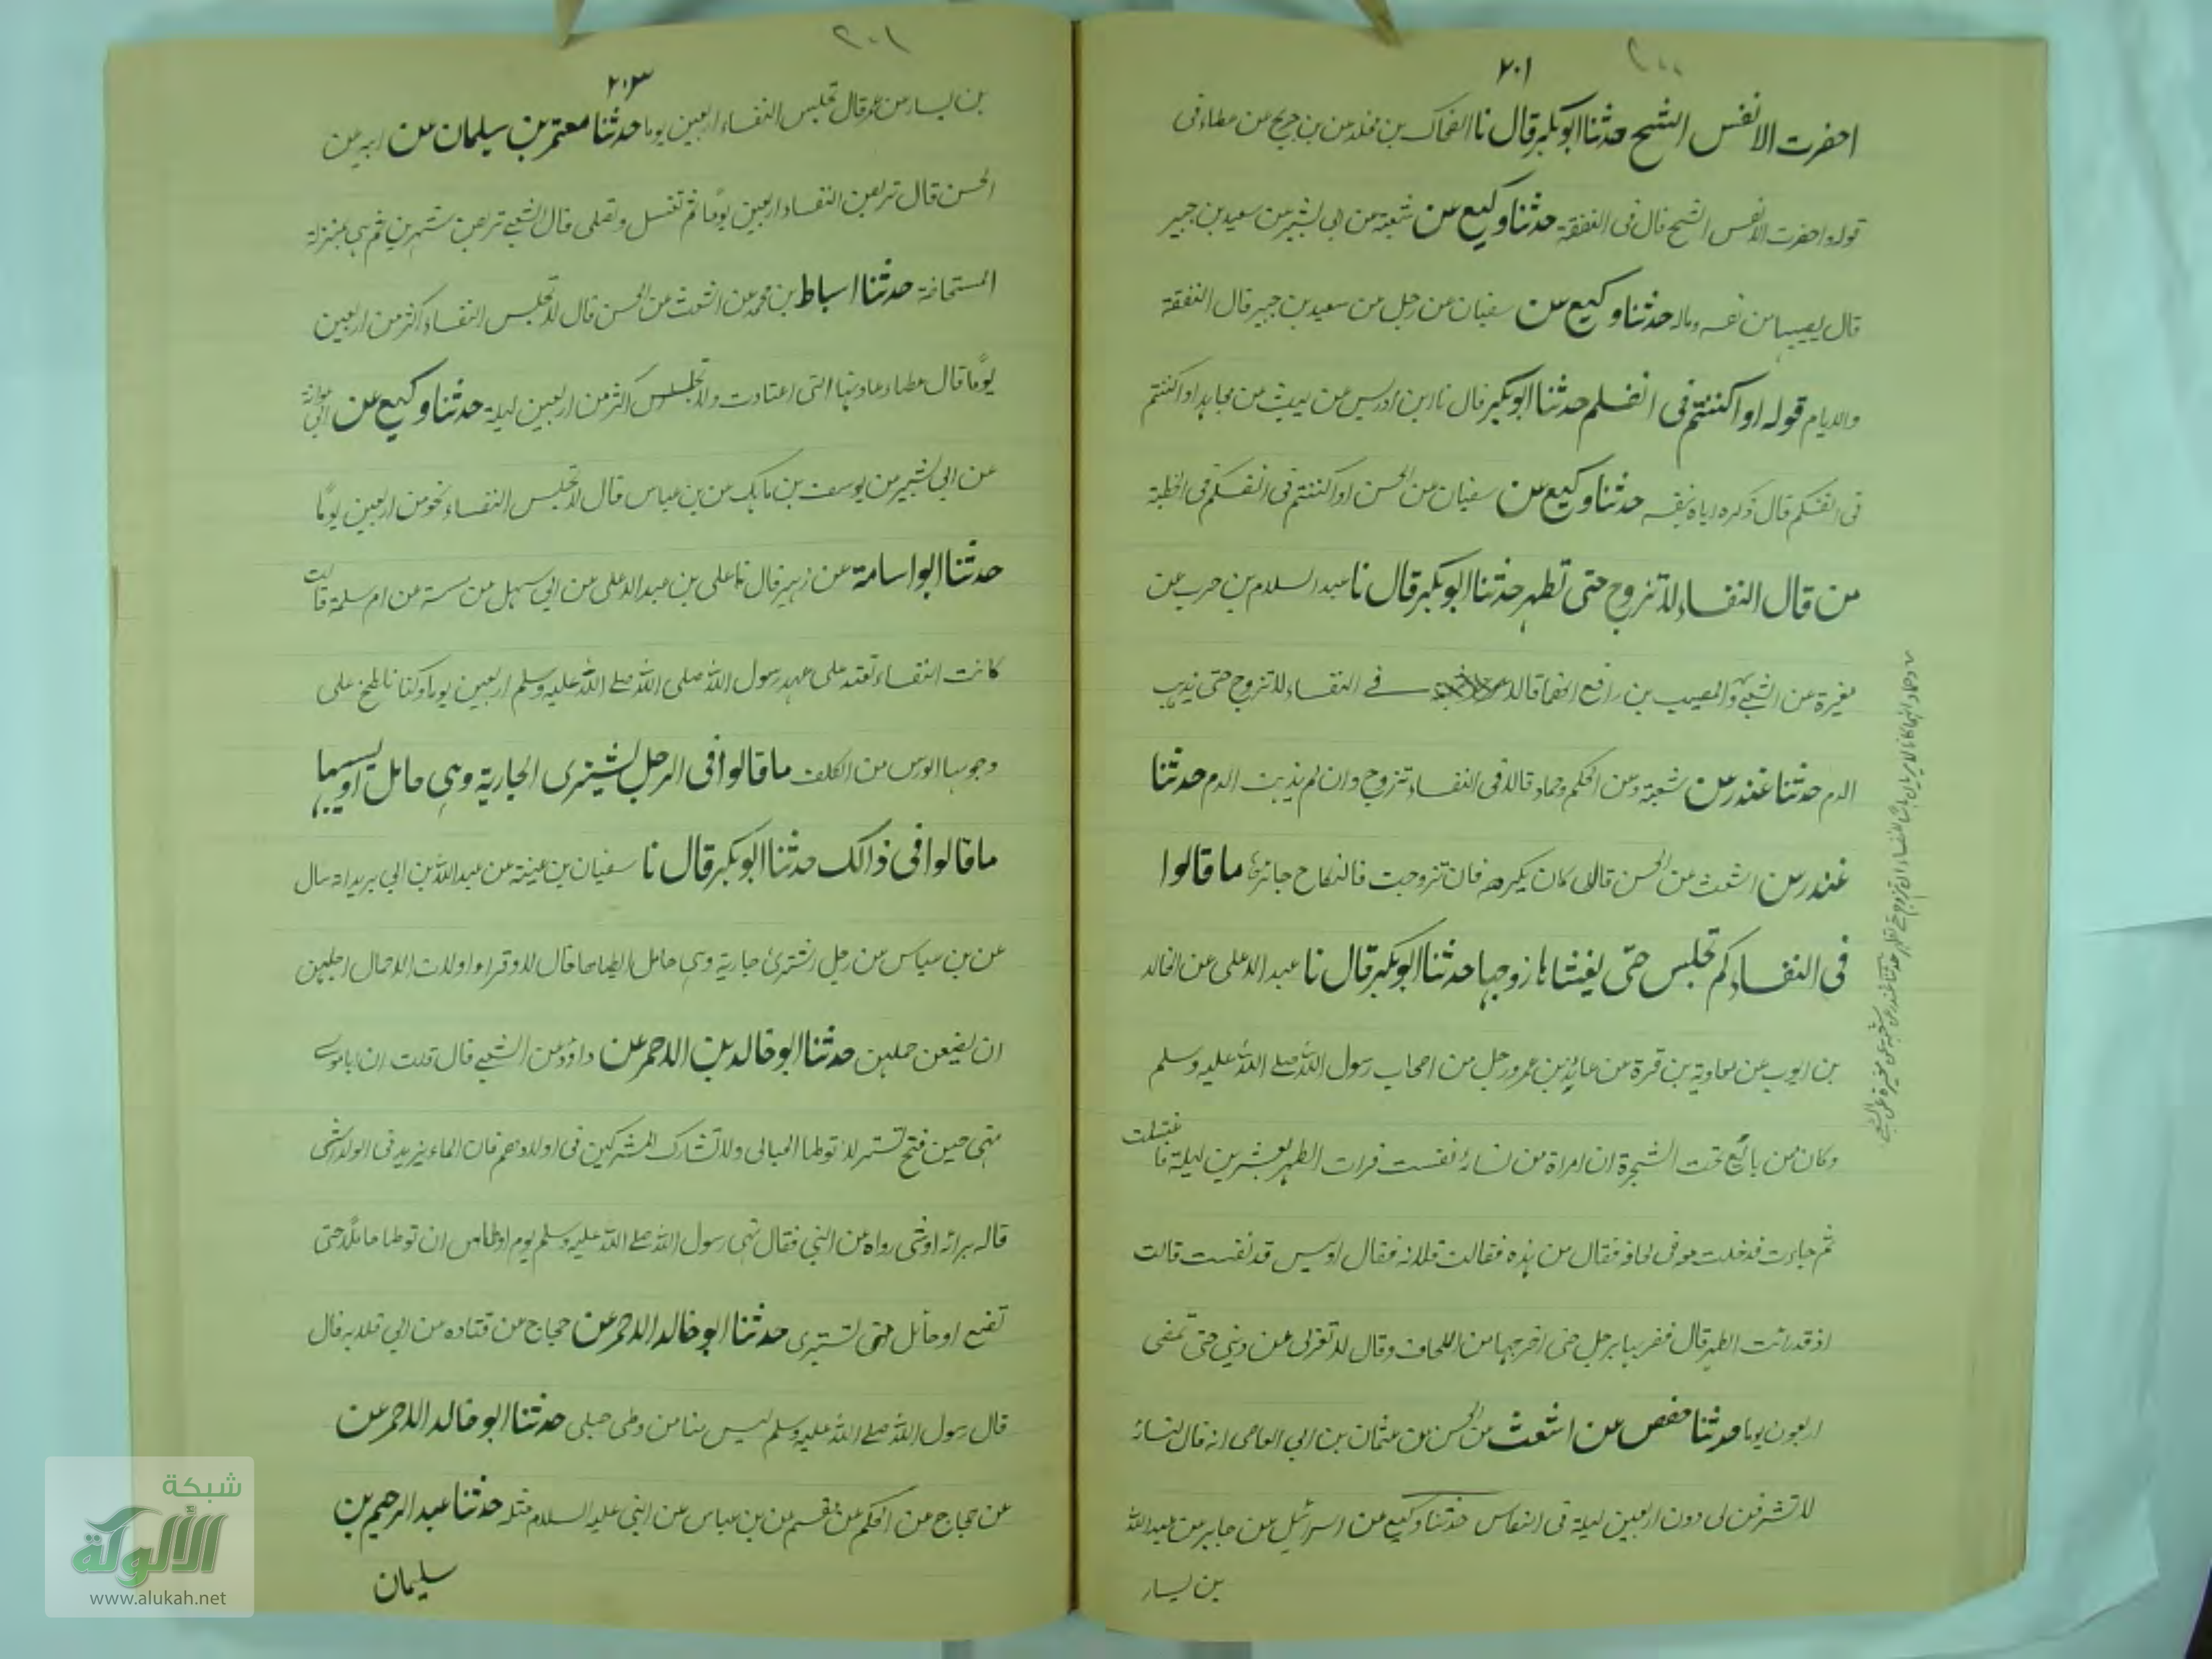 ٢٠١
احضرت الانفس الشح حدثنا ابوبكر قال نا الضحاك بن مخلد عن بن جريج عن عطاء فى
قوله واحضرت الانفس الشح قال فى النفقة حدثنا وكيع عن شعبة عن ابى بشير عن سعيد بن جبير
قال يصيبها من نفسه وماله حدثنا وكيع عن سفيان عن رجل عن سعيد بن جبير قال النفقة
والايام قوله او اكننتم فى انفسكم حدثنا ابوبكر قال نا ابن ادريس عن ليث عن مجاهد او اكننتم
فى انفسكم قال ذكره اياه بنفسه حدثنا وكيع عن سفيان عن الحسن او اكننتم فى انفسكم فى الخطبة
من قال النفساء لا تزوج حتى تطهر حدثنا ابوبكر قال نا عبد السلام بن حرب عن
مغيرة عن الشعبى والمصيب بن رافع انهما قالا فى النفساء لا تزوج حتى يذهب
الدم حدثنا غندر عن شعبة وعن الحكم وحماد قالا فى النفساء تزوج وان لم يذهب الدم حدثنا
غندر عن اشعث عن الحسن قال كان يكره فان تزوجت فالنكاح جائز ما قالوا
فى النفساء كم تجلس حتى يغشاها زوجها حدثنا ابوبكر قال نا عبد الاعلى عن الخالد
بن ايوب عن معاوية بن قرة عن عايذ بن عمرو رجل من اصحاب رسول الله صلے الله عليه وسلم
وكان من بائع تحت الشجرة ان امراة من نسائه نفست فرات الطهر بعشرين ليلة فاغتسلت
ثم جاءت فدخلت معه فى لحافه فقال من هذه فقالت فلانه فقال اوليس قد نفست قالت
اذ قد رائت الطهر قال فضربها برجل حتى اخرجها من اللحاف وقال لا تغرنى عن دينى حتى تمضى
اربعون يوما حدثنا حفص عن اشعث عن الحسن عن عثمان بن ابى العاص انه قال لنسائه
لا تشرفن لى دون اربعين ليلة فى النفاس حدثنا وكيع عن اسرائيل عن جابر عن عبد الله
بن يسار
٢٠٣
بن يسار عن عمر قال تجلس النفساء اربعين يوما حدثنا معتمر بن سليمان عن ابيه عن
الحسن قال تربص النفساء اربعين يومًا ثم تغتسل وتصلى قال الشعبے تربص شهرين ثم هى بمنزلة
المستحاضة حدثنا اسباط بن محمد عن اشعث عن الحسن قال لا تجلس النفساء اكثر من اربعين
يومًا قال عطاء عادتها التى اعتادت ولا تجلس اكثر من اربعين ليلة حدثنا وكيع عن ابى عوانة
عن ابى بشير عن يوسف بن ماهك عن بن عباس قال لا تجلس النفساء نحو من اربعين يومًا
حدثنا ابو اسامة عن زهير قال نا على بن عبد الاعلى عن ابى سهل عن مسة عن ام سلمة قالت
كانت النفساء تقعد على عهد رسول الله صلى الله صلے الله عليه وسلم اربعين يوما وكنا نا طلخ على
وجوهها الورس من الكلف ما قالوا فى الرجل يشترى الجارية وهى حامل او يسبيها
ما قالوا فى ذالك حدثنا ابوبكر قال نا سفيان بن عينة عن عبد الله بن ابى يزيد انه سال
عن بن عباس عن رجل اشترى جارية وهى حامل ايطاها قال لا وقرا واولات الاحمال اجلهن
ان يضعن حملهن حدثنا ابو خالد بن الاحمر عن داؤد عن الشعبے قال قلت ان ابا موسى
نهى حين فتح تستر لا توطا الحبالى ولا تشارك المشركين فى اولادهم فان الماء يزيد فى الولد اشئ
قاله برائه او شئ رواه عن النبى فقال نهى رسول الله صلے الله عليه وسلم يوم اوطاس ان توطا حاملا حتى
تضع او حائل حتى تستبرى حدثنا ابو خالد الاحمر عن حجاج عن قتاده عن ابى قلابه قال
قال رسول الله صلے الله عليه وسلم ليس منا من وطى حبلى حدثنا ابو خالد الاحمر عن
عن حجاج عن الحكم عن مقسم عن بن عباس عن النبى عليه السلام مثله حدثنا عبد الرحيم بن
سليمان
شبكة
الألوكة
www.alukah.net